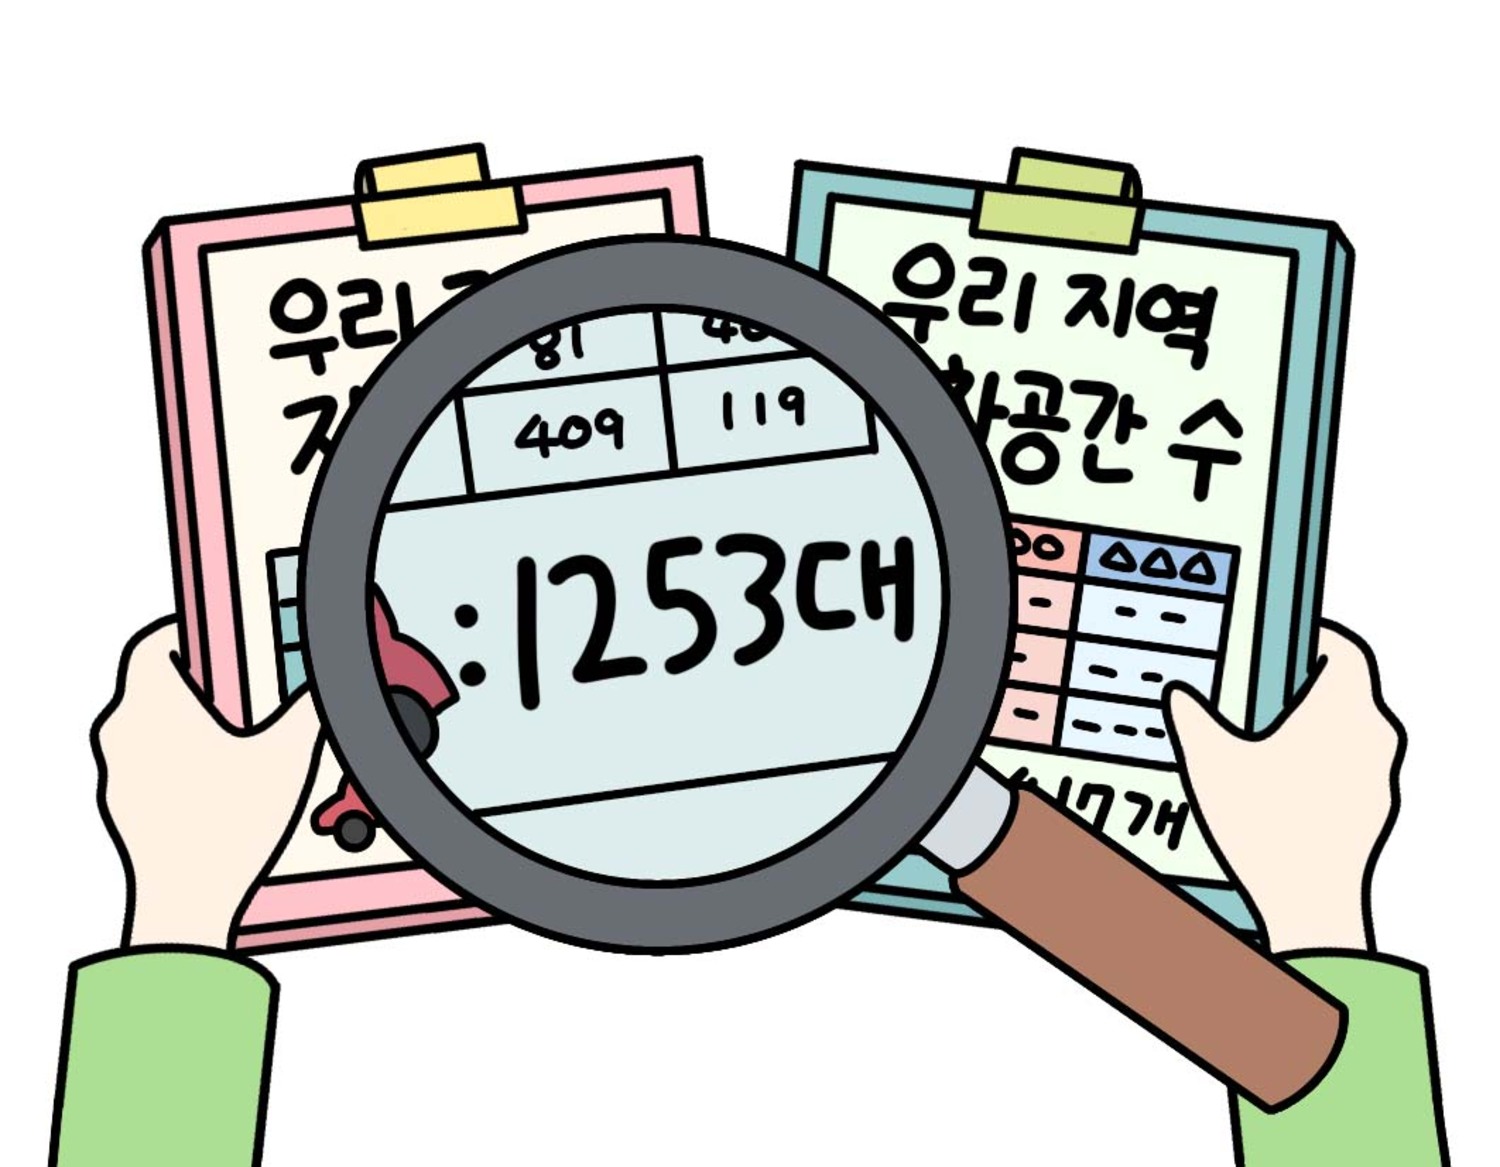 우리
81
409 119
:1253대
우리 지역
공간 수
△△△
- -
- - -
- - - -
17개